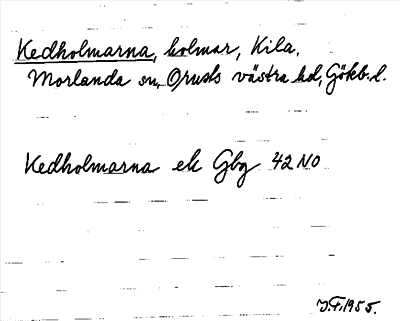 Kedholmarna, holmar, Kila,
Morlanda sn, Orusts västra hd, Gökb. l.
Kedholmarna ek Gbg 42 NO
J.F. 1955.